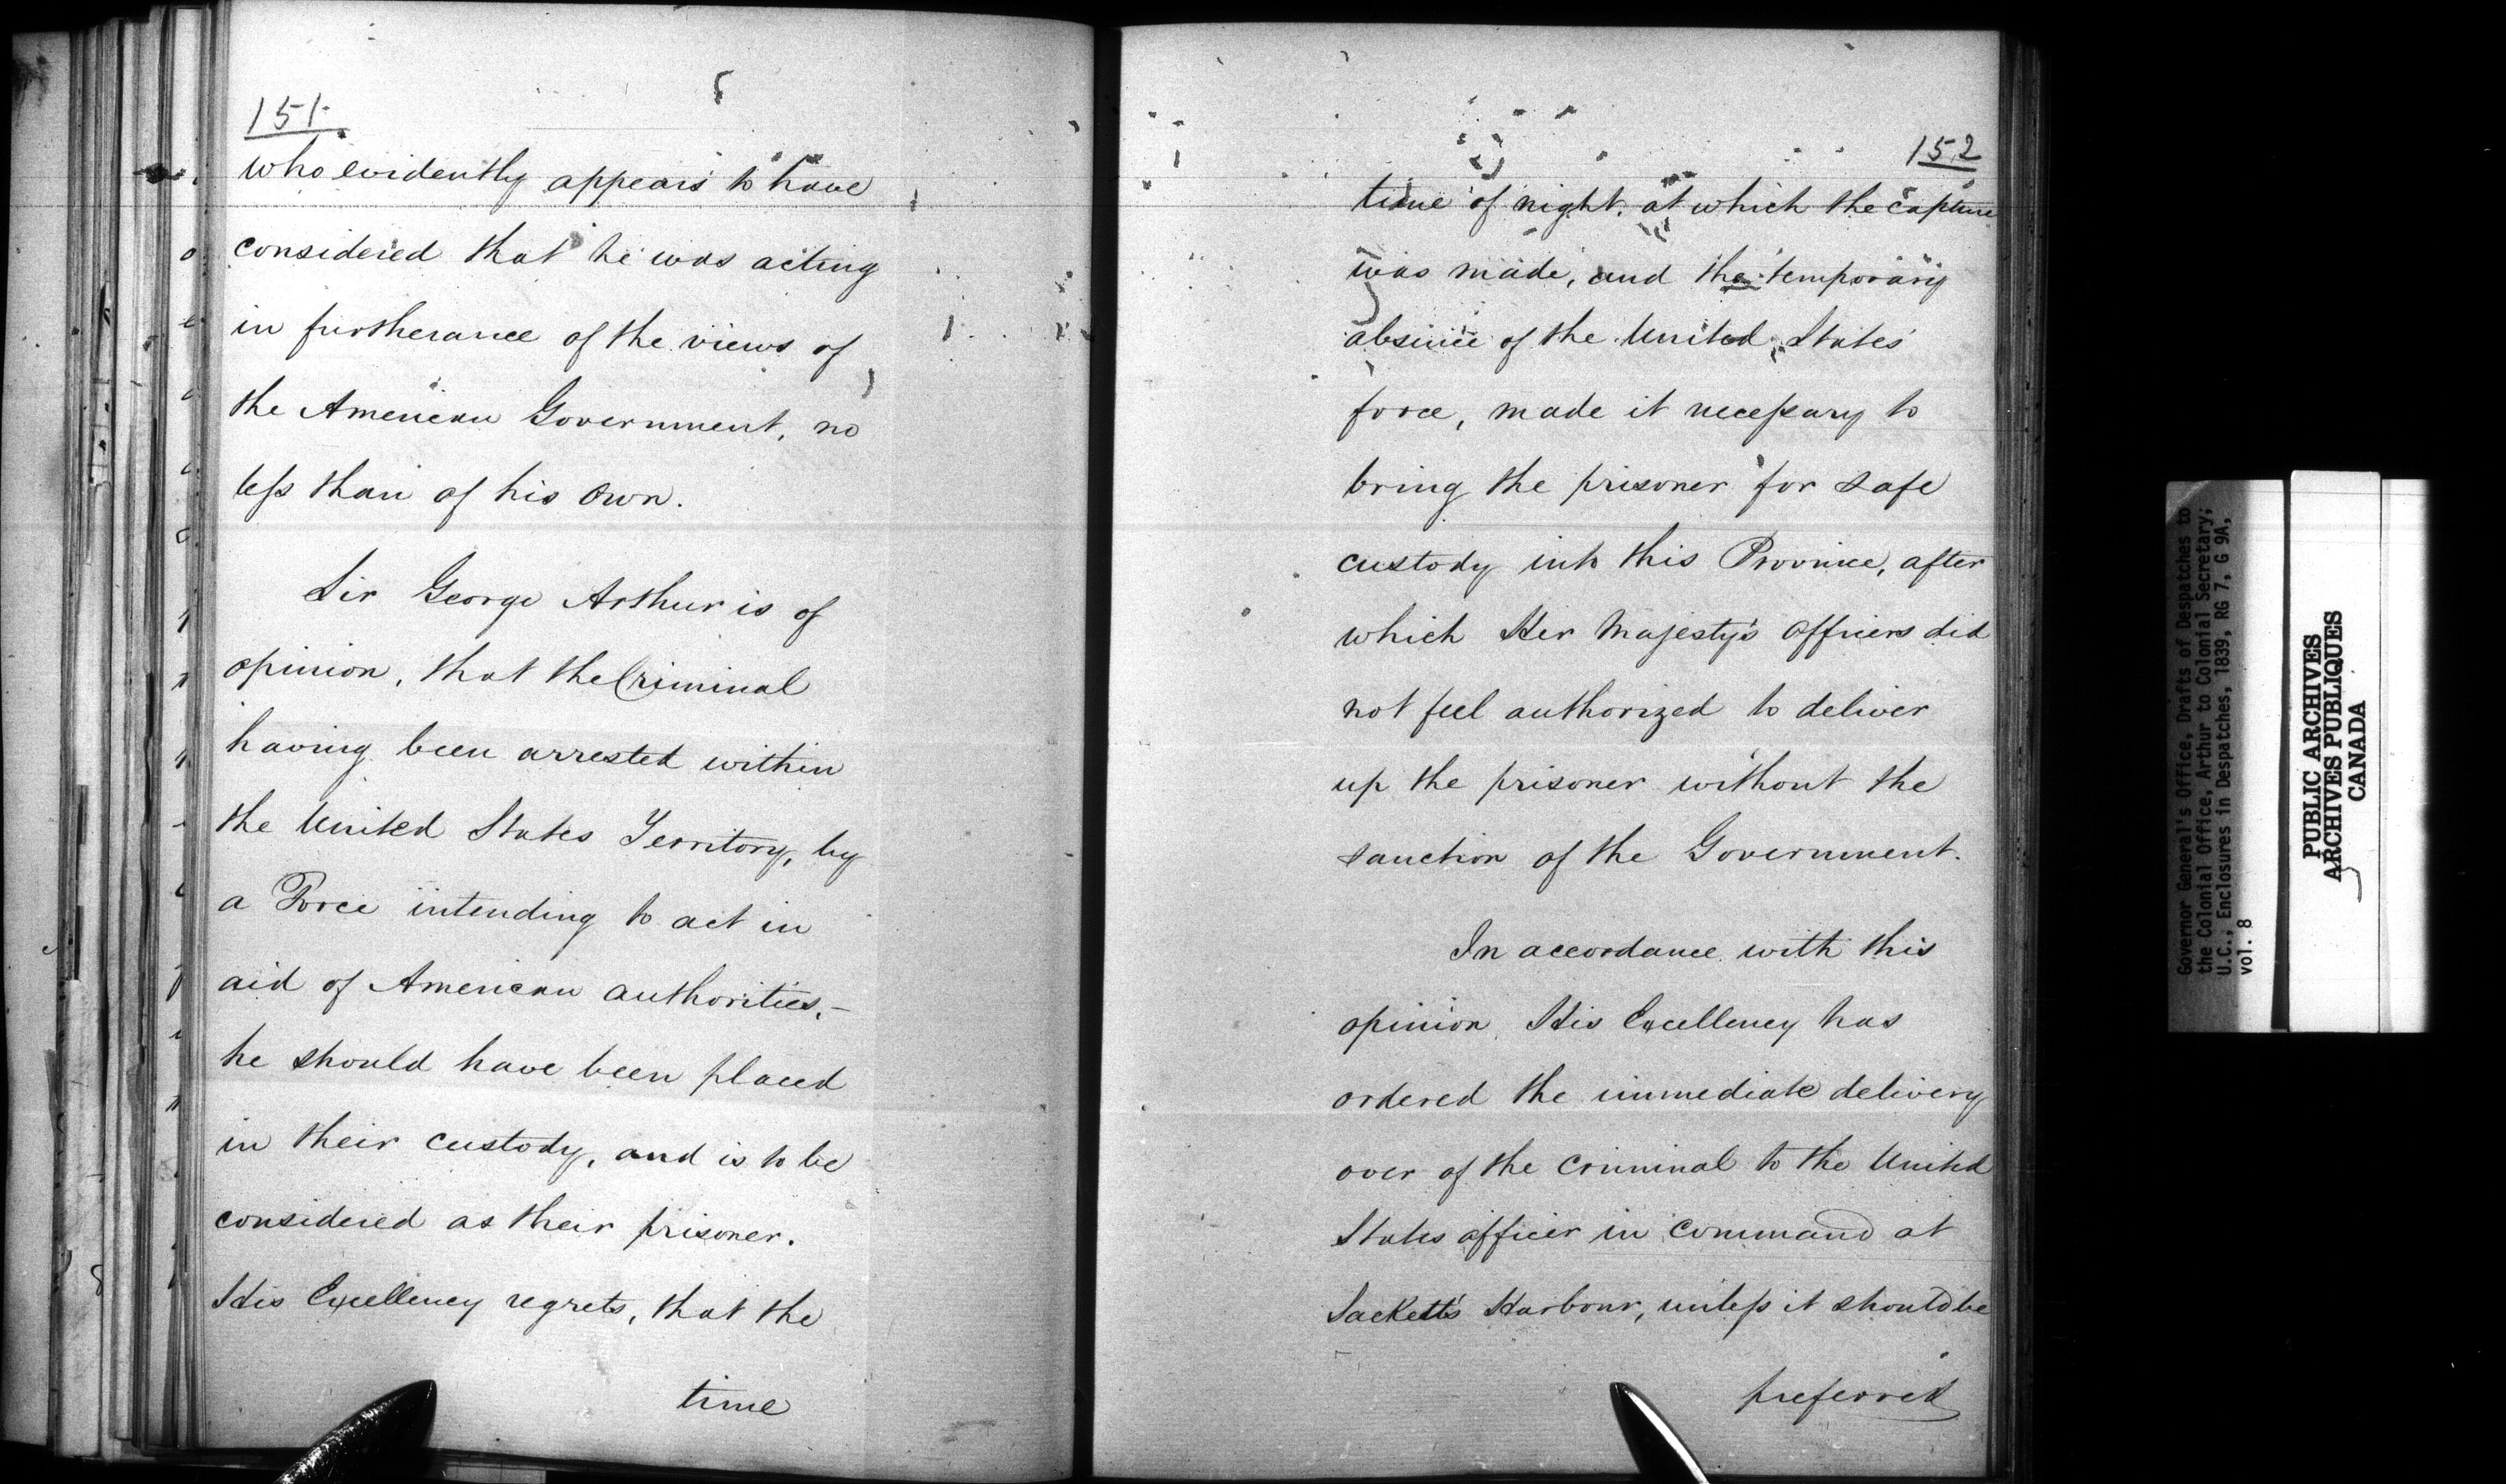 151.
who evidently appears to have
considered that he was acting
in furtherance of the views of
the American Government, no
less than of his own.
Sir George Arthur is of
opinion, that the Criminal
having been arrested within
the United States Territory, by
a Force intending to act in
aid of American authorities,-
he should have been placed
in their custody, and is to be
considered as their prisoner.
His Excellency regrets, that the
time
152
time of night, at which the capture
was made, and the temporary
absence of the United States
force, made it necessary to
bring the prisoner for safe
custody into this Province, after
which Her Majesty's Officers did
not feel authorized to deliver
up the prisoner without the
sanction of the Government.
In accordance with this
opinion His Excellency has
ordered the immediate delivery
over of the criminal to the United
States officer in command at
Sackett's Harbour, unless it should be
preferred
Governor General's Office, Drafts of Despatches to
the Colonial Office, Arthur to Colonial Secretary;
U.C., Enclosures in Despatches, 1839, RG 7, G 9A,
vol. 8
PUBLIC ARCHIVES
ARCHIVES PUBLIQUES
CANADA